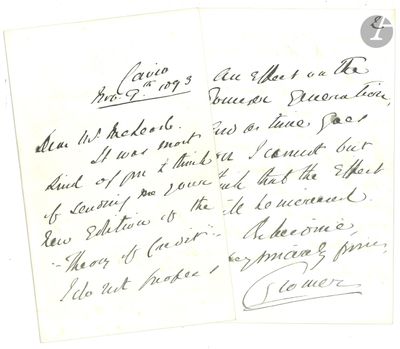 Cairo
Nov. 9th 1893
Dear Mr. McLeod.
It was most
kind of you to think
of sending me your
new Edition of the
"Theory of Credit".
I do not profess
an Effect on the
generation,
as time goes
on I cannot but
that the Effect
be increased.
Believe me
very sincerely yours
Cromer